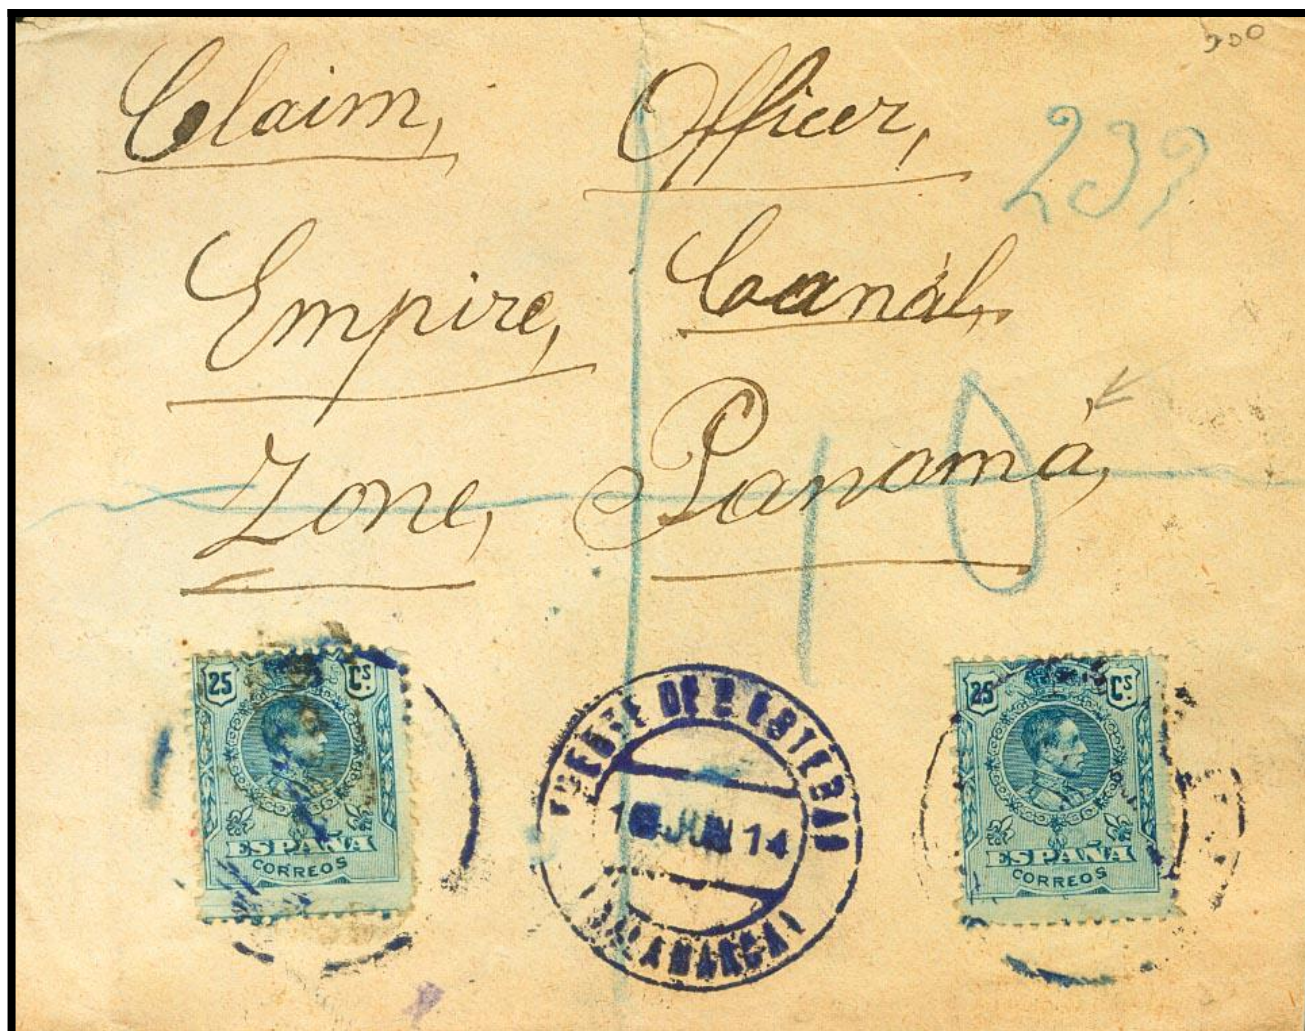 Claim, Officer,
Empire, Canál,
Zone, Panamá,
10
25 Cs.
ESPAÑA
CORREOS
JUN 14
(SALAMANCA)
25 Cs
ESPAÑA
CORREOS